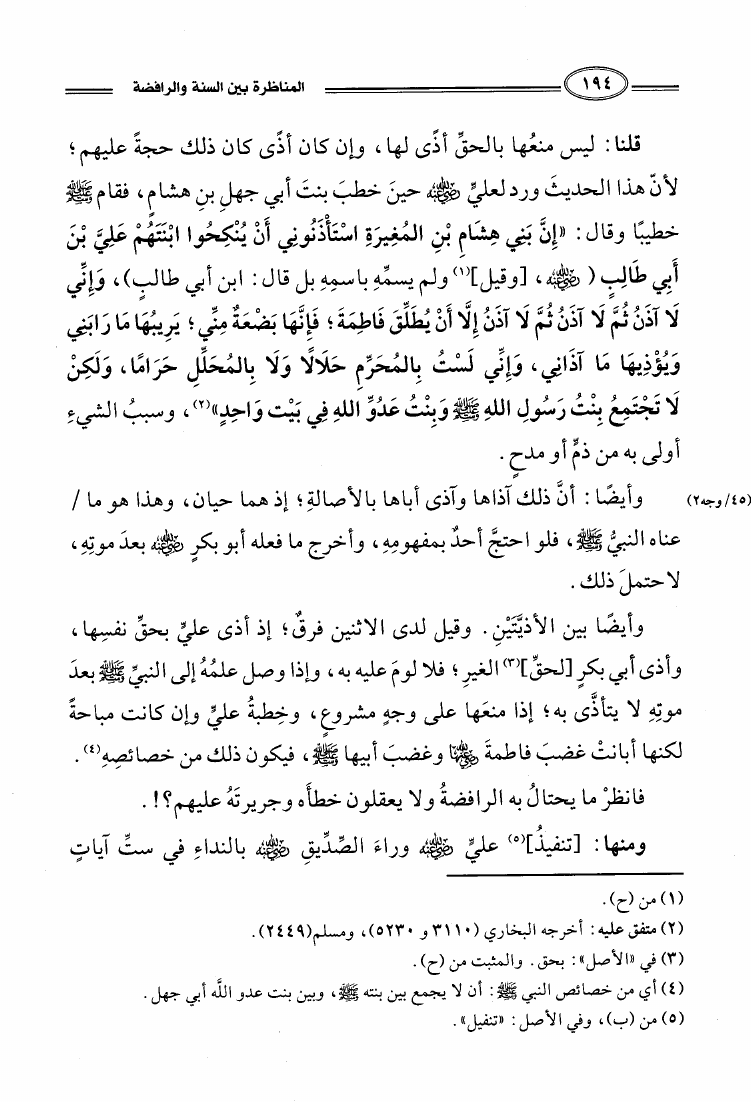 ١٩٤ المناظرة بين السنة والرافضة
قلنا: ليس منعُها بالحقِّ أذى لها، وإن كان أذًى كان ذلك حجةً عليهم؛
لأنّ هذا الحديثَ ورد لعليٍّ رضي الله عنه حينَ خطبَ بنتَ أبي جهلِ بنِ هشامٍ، فقام ﷺ
خطيبًا وقال: «إِنَّ بَنِي هِشَامِ بْنِ المُغِيرَةِ اسْتَأْذَنُونِي أَنْ يُنْكِحُوا ابْنَتَهُمْ عَلِيَّ بْنَ
أَبِي طَالِبٍ ( رضي الله عنه، [وقيل](١) ولم يسمِّهِ باسمِهِ بل قال: ابن أبي طالبٍ)، وَإِنِّي
لَا آذَنُ ثُمَّ لَا آذَنُ ثُمَّ لَا آذَنُ إِلَّا أَنْ يُطَلِّقَ فَاطِمَةَ؛ فَإِنَّهَا بَضْعَةٌ مِنِّي؛ يَرِيبُهَا مَا رَابَنِي
وَيُؤْذِيهَا مَا آذَانِي، وَإِنِّي لَسْتُ بِالمُحَرِّمِ حَلَالًا وَلَا بِالمُحَلِّلِ حَرَامًا، وَلَكِنْ
لَا تَجْتَمِعُ بِنْتُ رَسُولِ اللهِ ﷺ وَبِنْتُ عَدُوِّ اللهِ فِي بَيْت وَاحِدٍ»(٢)، وسببُ الشيءِ
أولى به من ذمٍّ أو مدحٍ.
وأيضًا: أنَّ ذلك آذاها وآذى أباها بالأصالةِ؛ إذ هما حيان، وهذا هو ما / (٤٥/وجه٢)
عناه النبيُّ ﷺ، فلو احتجَّ أحدٌ بمفهومِهِ، وأخرج ما فعله أبو بكرٍ رضي الله عنه بعدَ موتِهِ،
لاحتملَ ذلك.
وأيضًا بين الأذيَّتَيْنِ. وقيل لدى الاثنين فرقٌ؛ إذ أذى عليٍّ بحقِّ نفسِها،
وأذى أبي بكرٍ [لحقِّ](٣) الغيرِ؛ فلا لومَ عليه به، وإذا وصل علمُهُ إلى النبيِّ ﷺ بعدَ
موتِهِ لا يتأذَّى به؛ إذا منعَها على وجهٍ مشروعٍ، وخِطبةُ عليٍّ وإن كانت مباحةً
لكنها أبانتْ غضبَ فاطمةَ رضي الله عنها وغضبَ أبيها ﷺ، فيكون ذلك من خصائصِهِ(٤).
فانظرْ ما يحتالُ به الرافضةُ ولا يعقلون خطأَه وجريرتَهُ عليهم؟!.
ومنها: [تنفيذُ](٥) عليٍّ رضي الله عنه وراءَ الصِّدِّيقِ رضي الله عنه بالنداءِ في ستِّ آياتٍ
(١) من (ح).
(٢) متفق عليه: أخرجه البخاري (٣١١٠ و ٥٢٣٠)، ومسلم(٢٤٤٩).
(٣) في «الأصل»: بحق. والمثبت من (ح).
(٤) أي من خصائص النبي ﷺ: أن لا يجمع بين بنته ﷺ، وبين بنت عدو الله أبي جهل.
(٥) من (ب)، وفي الأصل: «تنفيل».